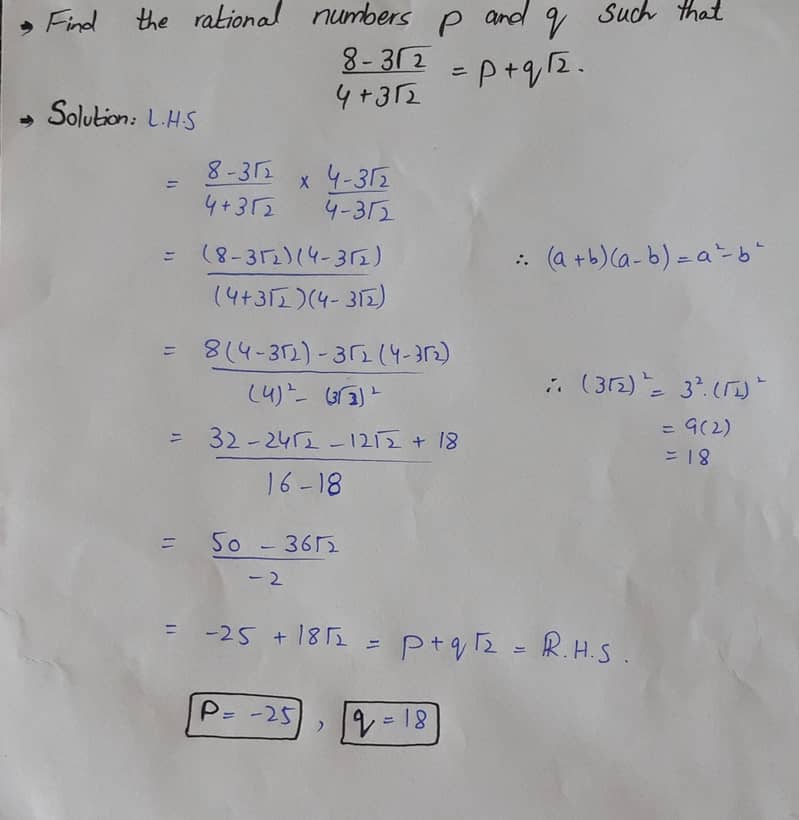 → Find the rational numbers p and q such that
8-3√2 / 4+3√2 = p+q√2.
→ Solution: L.H.S
= 8-3√2 / 4+3√2 × 4-3√2 / 4-3√2
= (8-3√2)(4-3√2) / (4+3√2)(4-3√2) ∴ (a+b)(a-b)=a²-b²
= 8(4-3√2)-3√2(4-3√2) / (4)²-(3√2)² ∴ (3√2)² = 3².(√2)²
= 9(2)
= 18
= 32-24√2-12√2+18 / 16-18
= 50-36√2 / -2
= -25+18√2 = p+q√2 = R.H.S.
P=-25, q=18